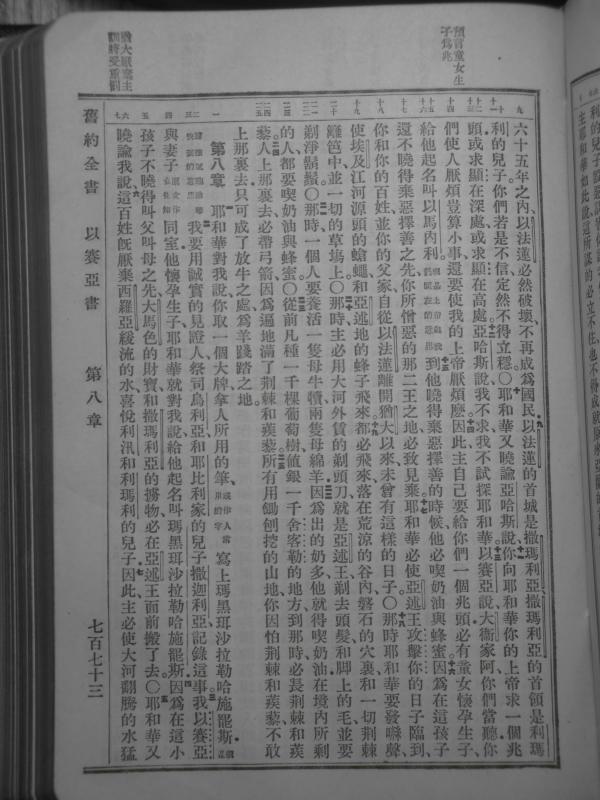 預言童女生
子爲兆
猶大厭棄主
訓將受重罰
六十五年之內以法蓮必然破壞不再成爲國民以法蓮的首城是撒瑪利亞撒瑪利亞的首領是利瑪
利的兒子你們若是不信定然不得立穩〇耶和華又曉諭亞哈斯說你向耶和華你的上帝求一個兆
頭或求顯在深處或求顯在高處亞哈斯說我不求我不試探耶和華以賽亞說大衞家阿你們當聽你
們使人厭煩豈算小事還要使我的上帝厭煩麽因此主自己要給你們一個兆頭必有童女懷孕生子
給他起名叫以馬內利 到他曉得棄惡擇善的時候他必喫奶油與蜂蜜因爲在這孩子
還不曉得棄惡擇善之先你所憎惡的那二王之地必致見棄耶和華必使亞述王攻擊你的日子臨到
你和你的百姓並你的父家自從以法蓮離開猶大以來未曾有這樣的日子〇那時耶和華要發嘶聲
使埃及江河源頭的蒼蠅和亞述地的蜂子飛來都必飛來落在荒涼的谷內磐石的穴裏和一切荆棘
籬笆中並一切的草塲上〇那時主必用大河外賃的剃頭刀就是亞述王剃去頭髮和脚上的毛並要
剃淨鬍鬚〇那時一個人要養活一隻母牛犢兩隻母綿羊因爲出的奶多他就得喫奶油在境內所剩
的人都要喫奶油與蜂蜜〇從前凡種一千棵葡萄樹値銀一千舍客勒的地方到那時必長荆棘和蒺
藜人上那裏去必帶弓箭因爲遍地滿了荆棘和蒺藜所有用鋤刨挖的山地你因怕荆棘和蒺藜不敢
上那裏去只可成了放牛之處爲羊踐踏之地
第八章 耶和華對我說你取一個大牌拿人所用的筆 寫上瑪黑珥沙拉勒哈施罷斯
我要用誠實的見證人祭司烏利亞和耶比利家的兒子撒迦利亞記錄這事我以賽亞
與妻子 同室他懷孕生子耶和華就對我說給他起名叫瑪黑珥沙拉勒哈施罷斯因爲在這小
孩子不曉得叫父叫母之先大馬色的財寶和撒瑪利亞的擄物必在亞述王面前搬了去〇耶和華又
曉諭我說這百姓旣厭棄西羅亞緩流的水喜悅利汛和利瑪利的兒子因此主必使大河翻騰的水猛
舊約全書 以賽亞書 第八章 七百七十三